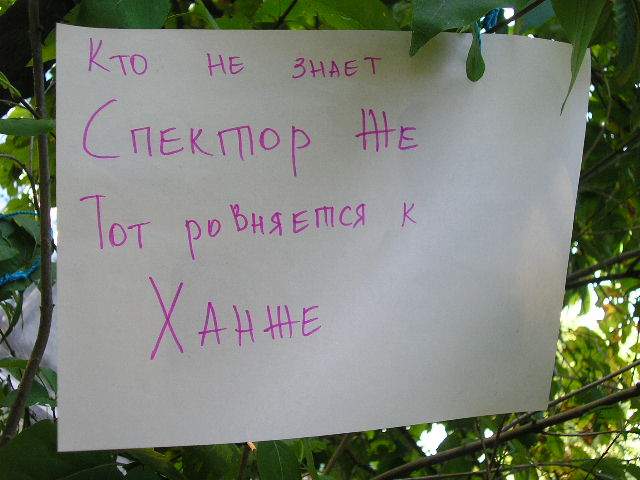 Кто не знает
Спектор Же
Тот ровняется к
Ханже